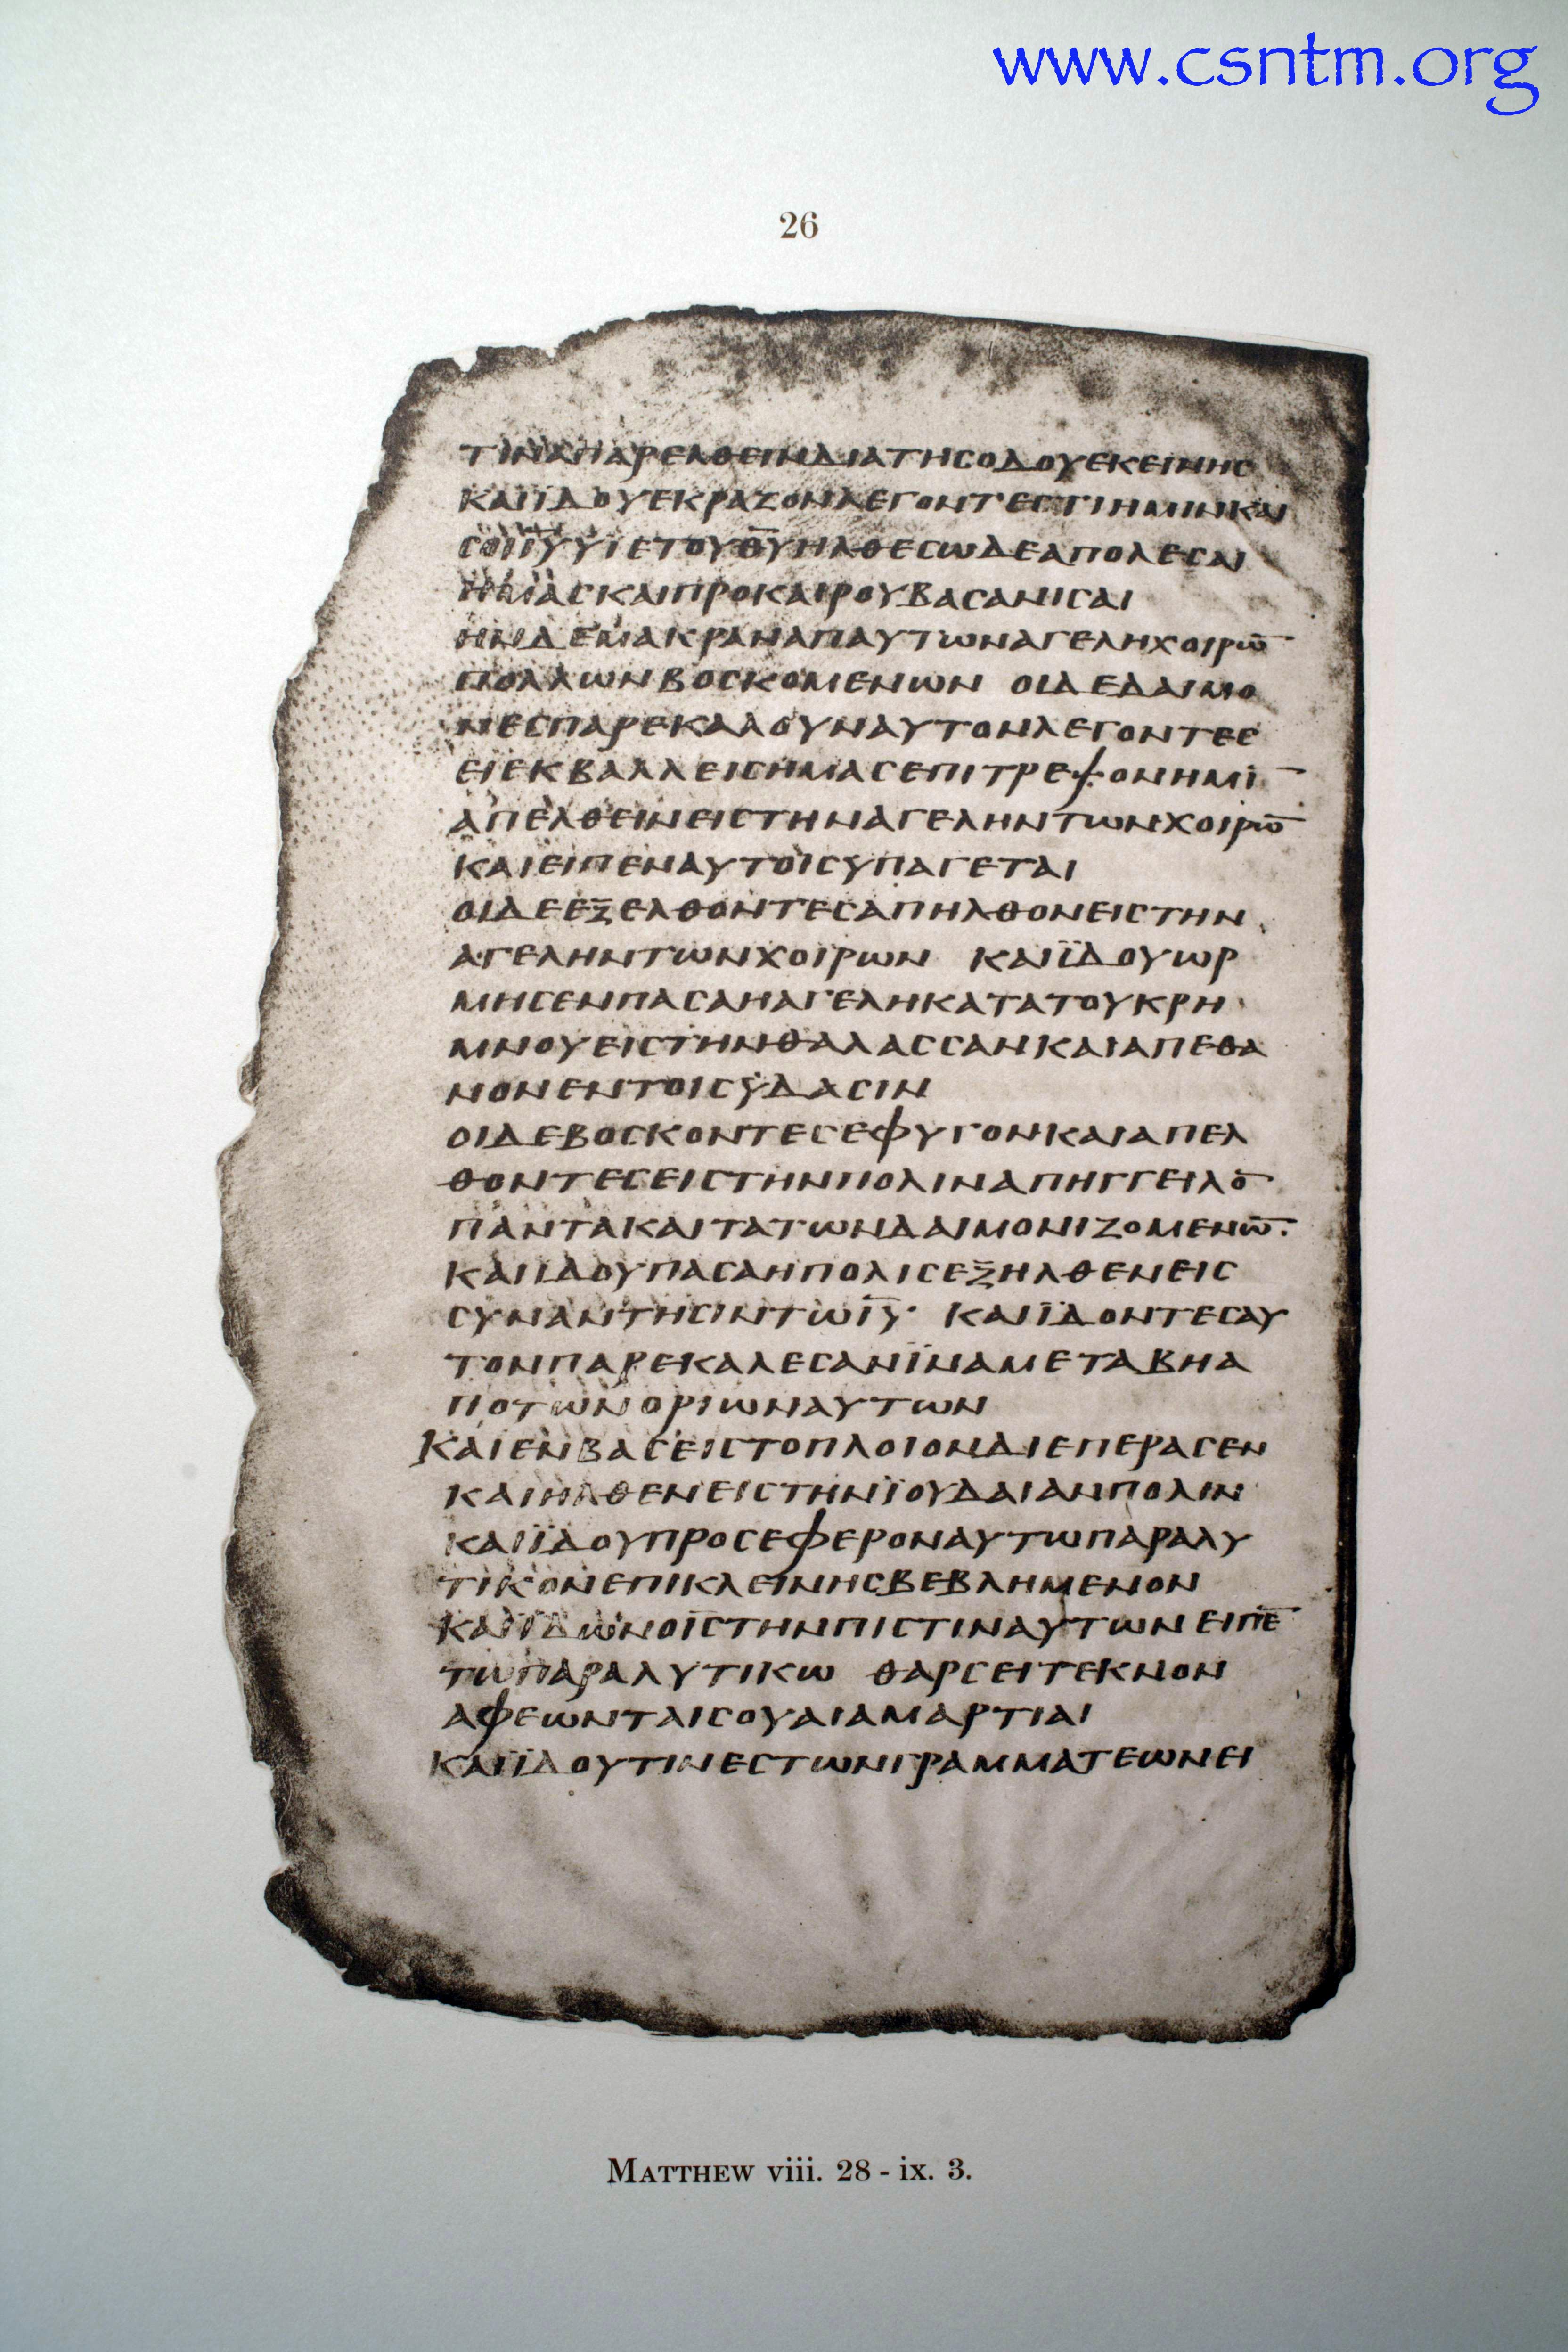 www.csntm.org
26
ΤΙΝΑΠΑΡΕΛΘΕΙΝΔΙΑΤΗCΟΔΟΥΕΚΕΙΝΗC
ΚΑΙΪΔΟΥΕΚΡΑΖΟΝΛΕΓΟΝΤΕCΤΙΗΜΙΝΚΑΙ
CΟΙΙ̅Υ̅ΥΙΕΤΟΥΘ̅Υ̅ΗΛΘΕCΩΔΕΑΠΟΛΕCΑΙ
ΗΜΑCΚΑΙΠΡΟΚΑΙΡΟΥΒΑCΑΝΙCΑΙ
ΗΝΔΕΜΑΚΡΑΝΑΠΑΥΤΩΝΑΓΕΛΗΧΟΙΡΩ̅
ΠΟΛΛΩΝΒΟCΚΟΜΕΝΩΝ ΟΙΔΕΔΑΙΜΟ
ΝΕCΠΑΡΕΚΑΛΟΥΝΑΥΤΟΝΛΕΓΟΝΤΕC
ΕΙΕΚΒΑΛΛΕΙCΗΜΑCΕΠΙΤΡΕΨΟΝΗΜΙ̅
ΑΠΕΛΘΕΙΝΕΙCΤΗΝΑΓΕΛΗΝΤΩΝΧΟΙΡΩ̅
ΚΑΙΕΙΠΕΝΑΥΤΟΙCΥΠΑΓΕΤΑΙ
ΟΙΔΕΕΞΕΛΘΟΝΤΕCΑΠΗΛΘΟΝΕΙCΤΗΝ
ΑΓΕΛΗΝΤΩΝΧΟΙΡΩΝ ΚΑΙΪΔΟΥΩΡ
ΜΗCΕΝΠΑCΑΗΑΓΕΛΗΚΑΤΑΤΟΥΚΡΗ
ΜΝΟΥΕΙCΤΗΝΘΑΛΑCCΑΝΚΑΙΑΠΕΘΑ
ΝΟΝΕΝΤΟΙCΫΔΑCΙΝ
ΟΙΔΕΒΟCΚΟΝΤΕCΕΦΥΓΟΝΚΑΙΑΠΕΛ
ΘΟΝΤΕCΕΙCΤΗΝΠΟΛΙΝΑΠΗΓΓΕΙΛΟ̅
ΠΑΝΤΑΚΑΙΤΑΤΩΝΔΑΙΜΟΝΙΖΟΜΕΝΩ̅.
ΚΑΙΪΔΟΥΠΑCΑΗΠΟΛΙCΕΞΗΛΘΕΝΕΙC
CΥΝΑΝΤΗCΙΝΤΩΙ̅Υ̅· ΚΑΙΪΔΟΝΤΕCΑΥ
ΤΟΝΠΑΡΕΚΑΛΕCΑΝΪΝΑΜΕΤΑΒΗΑ
ΠΟΤΩΝΟΡΙΩΝΑΥΤΩΝ
ΚΑΙΕΝΒΑCΕΙCΤΟΠΛΟΙΟΝΔΙΕΠΕΡΑCΕΝ
ΚΑΙΗΛΘΕΝΕΙCΤΗΝΪΟΥΔΑΙΑΝΠΟΛΙΝ
ΚΑΙΪΔΟΥΠΡΟCΕΦΕΡΟΝΑΥΤΩΠΑΡΑΛΥ
ΤΙΚΟΝΕΠΙΚΛΕΙΝΗCΒΕΒΛΗΜΕΝΟΝ
ΚΑΙΪΔΩΝΟΙ̅C̅ΤΗΝΠΙCΤΙΝΑΥΤΩΝΕΙΠΕ̅
ΤΩΠΑΡΑΛΥΤΙΚΩ ΘΑΡCΕΙΤΕΚΝΟΝ
ΑΦΕΩΝΤΑΙCΟΥΑΙΑΜΑΡΤΙΑΙ
ΚΑΙΪΔΟΥΤΙΝΕCΤΩΝΓΡΑΜΜΑΤΕΩΝΕΙ
MATTHEW viii. 28 - ix. 3.